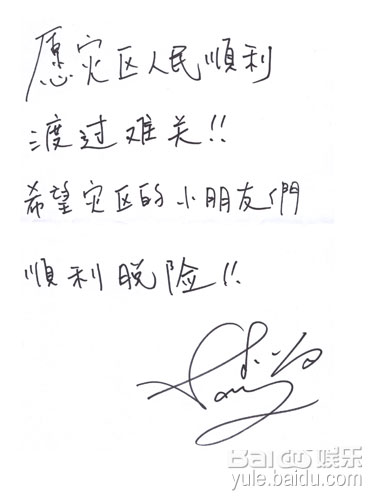 愿灾区人民順利
渡过难关!!
希望灾区的小朋友們
順利脱险!!
Bai 娱乐
yule.baidu.com